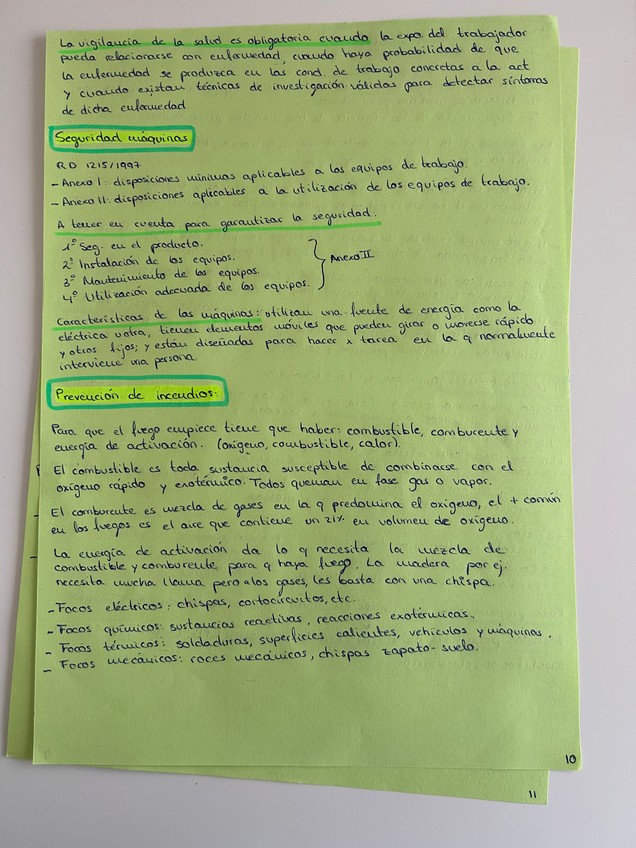 La vigilancia de la salud es obligatoria cuando la expo. del trabajador
pueda relacionarse con enfermedad, cuando haya probabilidad de que
la enfermedad se produzca en las cond. de trabajo concretas a la act
y cuando existan técnicas de investigación válidas para detectar síntomas
de dicha enfermedad
Seguridad máquinas
RD 1215/1997
- Anexo I: disposiciones mínimas aplicables a los equipos de trabajo.
- Anexo II: disposiciones aplicables a la utilización de los equipos de trabajo.
A tener en cuenta para garantizar la seguridad.
1º Seg. en el producto.
2º Instalación de los equipos.
3º Mantenimiento de los equipos.
4º Utilización adecuada de los equipos.
Anexo II
Características de las máquinas: utilizan una fuente de energía como la
eléctrica u otra, tienen elementos móviles que pueden girar o moverse rápido
y otros fijos; y están diseñadas para hacer x tarea en la q normalmente
interviene una persona
Prevención de incendios:
Para que el fuego empiece tiene que haber: combustible, comburente y
energía de activación. (oxígeno, combustible, calor).
El combustible es toda sustancia susceptible de combinarse con el
oxígeno rápido y exotérmico. Todos queman en fase gas o vapor.
El comburente es mezcla de gases en la q predomina el oxígeno, el + común
en los fuegos es el aire que contiene un 21% en volumen de oxígeno.
La energía de activación da lo q necesita la mezcla de
combustible y comburente para q haya fuego. La madera por ej.
necesita mucha llama pero a los gases, les basta con una chispa.
- Focos eléctricos: chispas, cortocircuitos, etc.
- Focos químicos: sustancias reactivas, reacciones exotérmicas.
- Focos térmicos: soldaduras, superficies calientes, vehículos y máquinas.
- Focos mecánicos: roces mecánicos, chispas zapato-suelo.
10
11